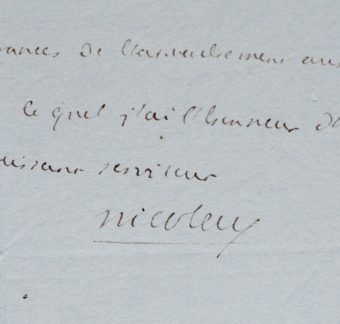 rances de l'attachement au
le quel j'ai l'honneur d
issant serviteur
nicolay